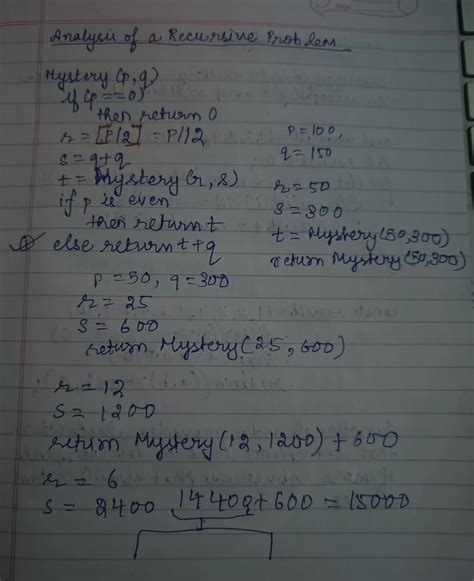 Analysis of a Recursive Problem
Mystery (p, q)
if (p == 0)
then return 0
r = [P/2] = P//2
s = q+q
t = Mystery (r, s)
if p is even
then return t
else return t+q
p = 100,
q = 150
r = 50
s = 300
t = Mystery (50, 300)
return Mystery (50, 300)
p = 50, q = 300
r = 25
s = 600
return Mystery (25, 600)
r = 12
s = 1200
return Mystery (12, 1200) + 600
r = 6
s = 2400 14400+600 = 15000